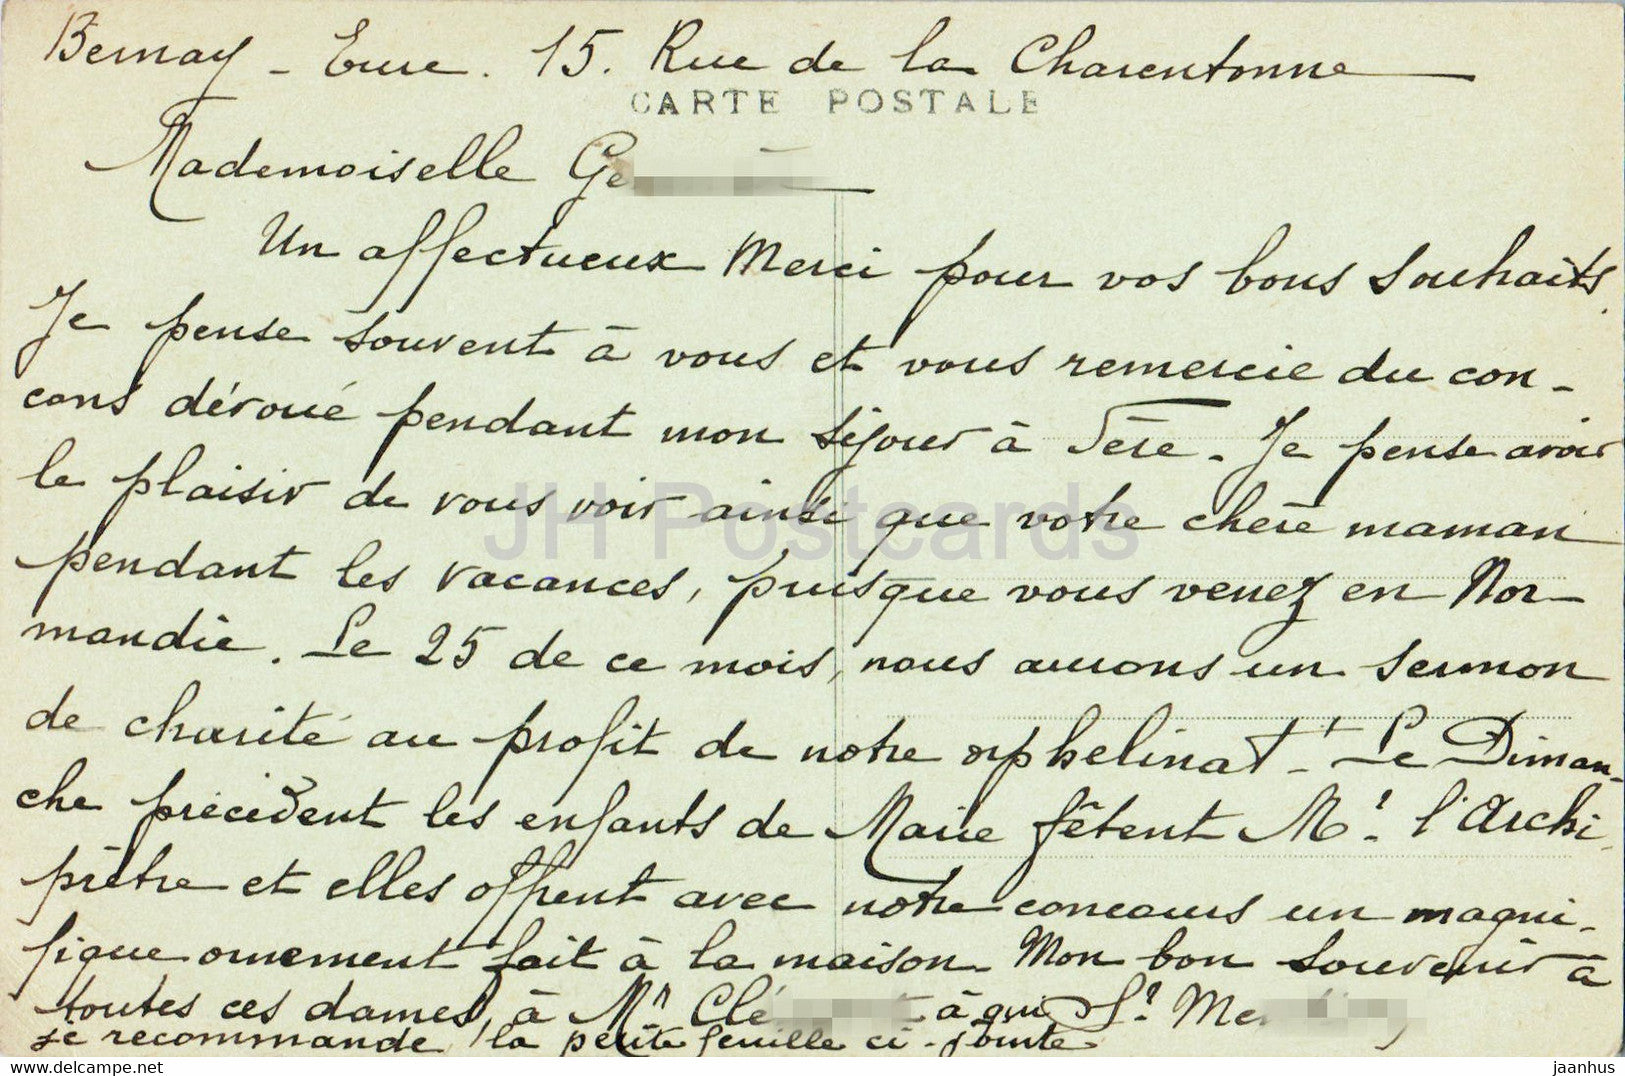 Bernay - Eure. 15. Rue de la Charentonne
CARTE POSTALE
Mademoiselle Ge
Un affectueux Merci pour vos bons souhaits.
Je pense souvent à vous et vous remercie du con-
cours dévoué pendant mon séjour à Fère. Je pense avoir
le plaisir de vous voir ainsi que votre chère maman
pendant les vacances, puisque vous venez en Nor-
mandie. Le 25 de ce mois, nous aurons un sermon
de charité au profit de notre orphelinat. Le Diman-
che précédent les enfants de Marie fêtent Mr. l'Archi-
prêtre et elles offrent avec notre concours un magni-
fique ornement fait à la maison. Mon bon souvenir à
toutes ces dames, à Mr Clé à qui Sr Me
je recommande la petite feuille ci-jointe.
JH Postcards
jaanhus
delcampe.net